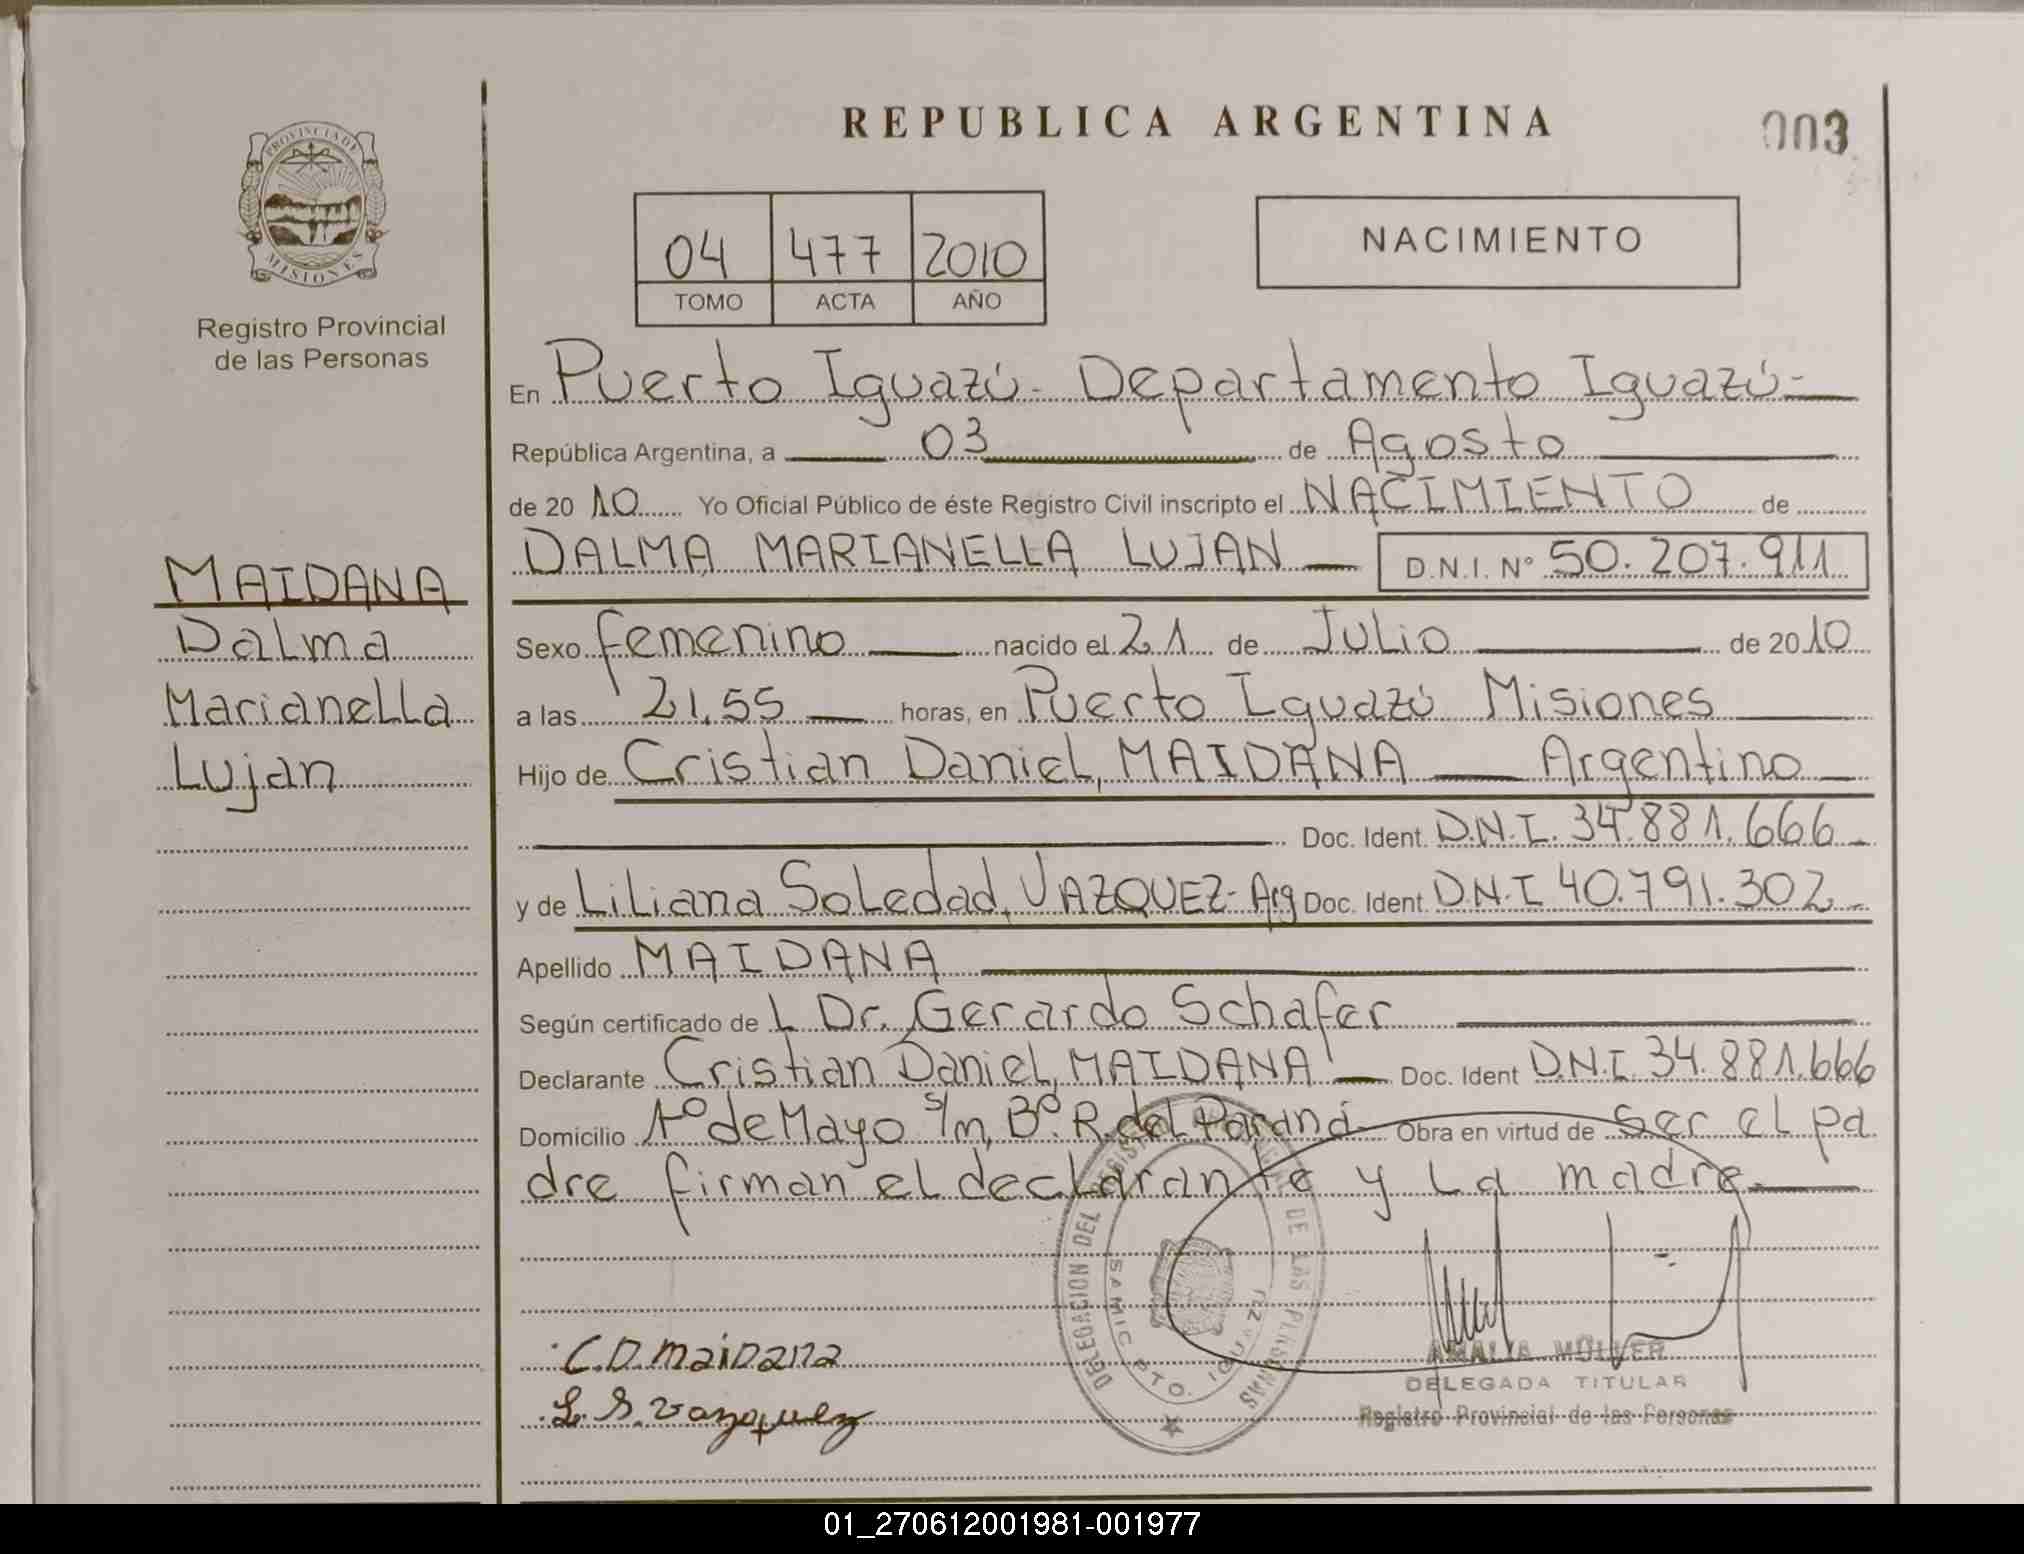 REPUBLICA ARGENTINA
003
PROVINCIA DE
MISIONES
Registro Provincial
de las Personas
04 477 2010
TOMO ACTA AÑO
NACIMIENTO
En Puerto Iguazú - Departamento Iguazú -
República Argentina, a 03 de Agosto
de 20 10 Yo Oficial Público de éste Registro Civil inscripto el NACIMIENTO de
DALMA MARIANELLA LUJAN D.N.I. Nº 50.207.911
MAIDANA
Dalma
Marianella
Lujan
Sexo femenino nacido el 21 de Julio de 2010
a las 21,55 horas, en Puerto Iguazú Misiones
Hijo de Cristian Daniel, MAIDANA Argentino
Doc. Ident. D.N.I. 34.881.666
y de Liliana Soledad, VAZQUEZ - Arg Doc. Ident. D.N.I 40.791.302
Apellido MAIDANA
Según certificado de L Dr. Gerardo Schafer
Declarante Cristian Daniel, MAIDANA Doc. Ident D.N.I. 34.881.666
Domicilio 1º de Mayo s/n, Bº. R. del Paraná - Obra en virtud de ser el pa
dre firman el declarante y la madre.
C.D. maidana
L. S. vazquez
DELEGACION DEL REGISTRO DE LAS PERSONAS
SAMIC PTO. IGUAZU
AMALIA MÜLLER
DELEGADA TITULAR
Registro Provincial de las Personas
01_270612001981-001977